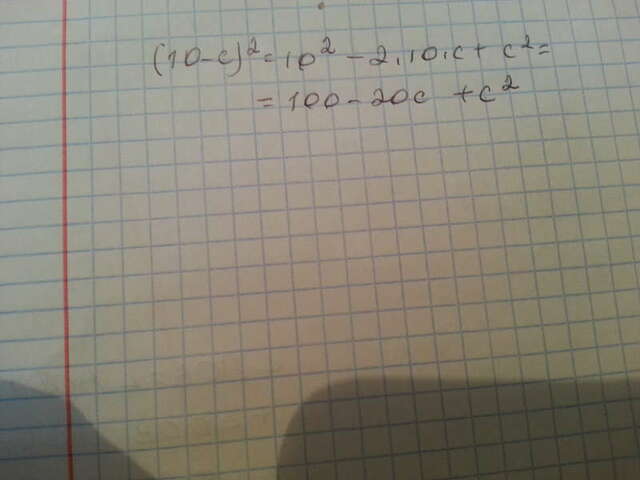 (10-c)²=10²-2·10·c+c²=
=100-20c+c²